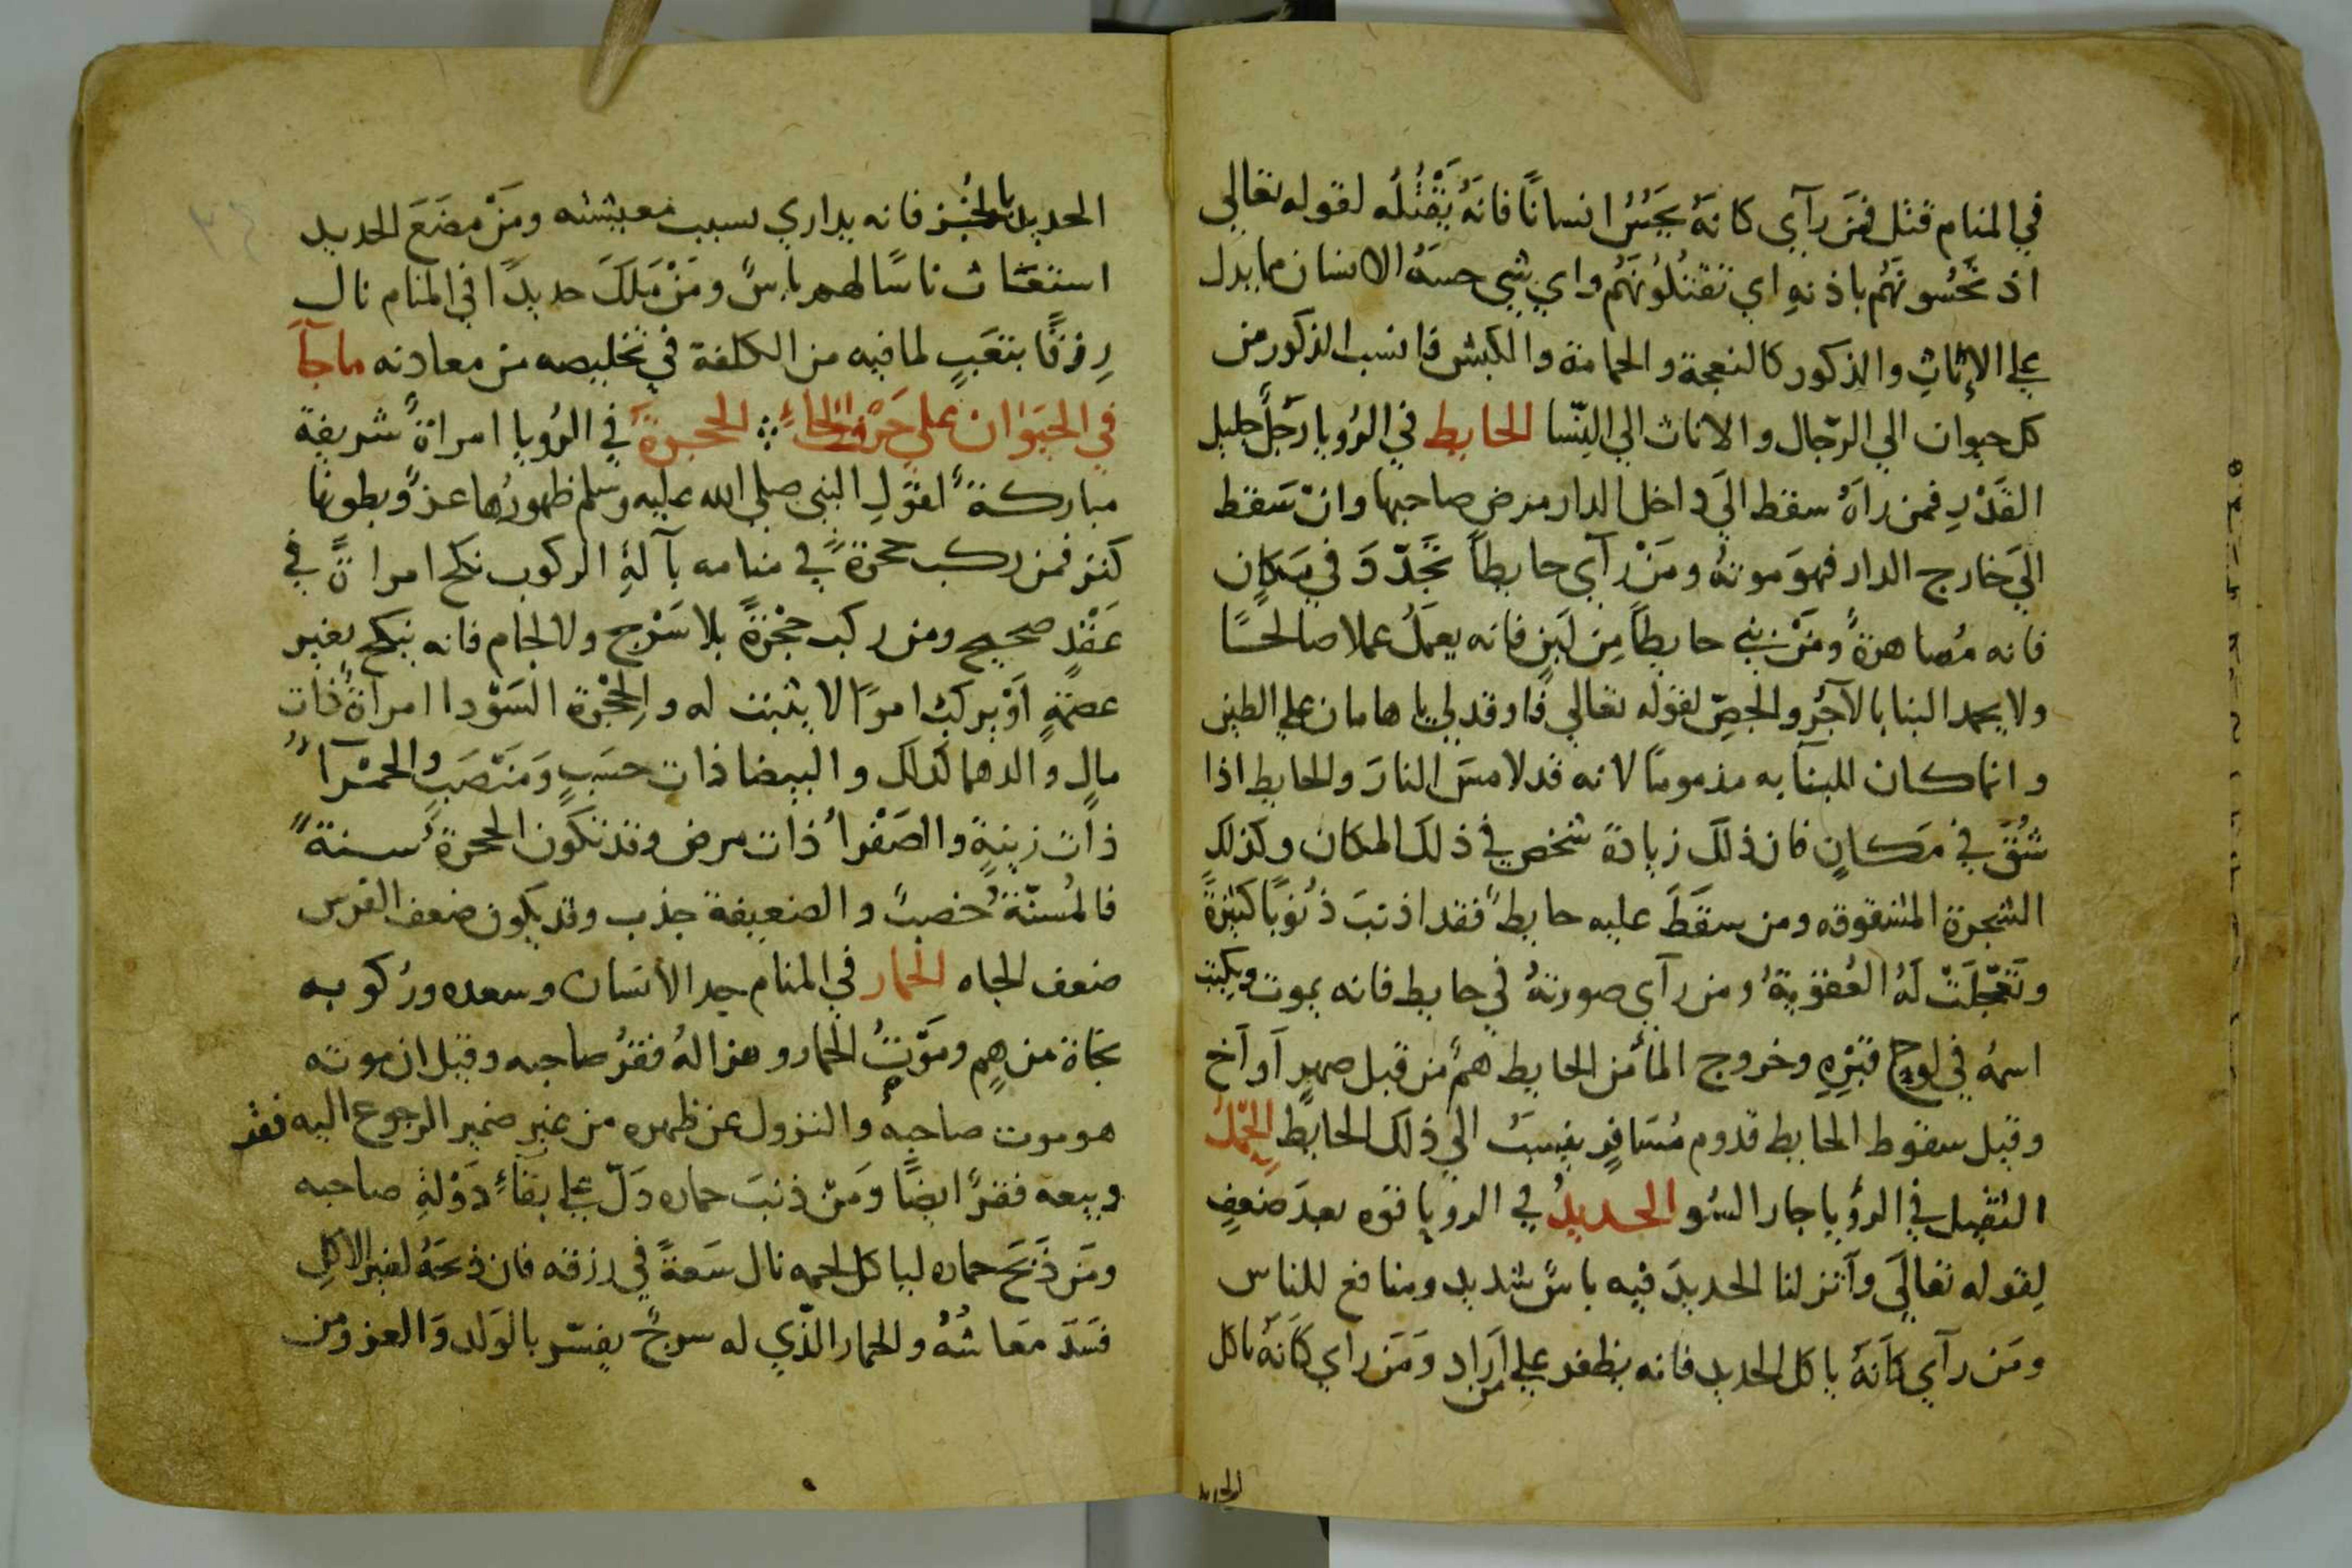 في المنام قتل فمَن رآي كانهُ يحِسُّ انسانًا فانهُ يَقْتُلُه لقوله تعالي
اذ تحُسُونهُم باذنهِ اي تقتلُونهُم واي شي حسهُ الانسان مما يدل
علي الإناثِ والذكور كالنعجة والحمامة والكبش فانسب الذكور من
كل حيوان الي الرّجال والاناث الي النّسا الحايط في الرُويا رَجُلٌ جليل
القَدْرِ فمن رآهُ سقط الَي داخل الدار مرض صاحبها وانْ سَقط
الَي خارج الدار فهوَ موتهُ ومَنْ رآي حايطاً تجَدّدَ في مَكانٍ
فانه مُصاهرةً ومَنْ بني حايطاً مِن لَبنٍ فانه يعمَلُ عملا صالحًا
ولا يحمد البنا بالآجُر والجصِّ لقوله تعالي فاوقد لي يا هامان علي الطين
وانما كان البنآ به مذمومًا لانه قد لامسَ النارَ والحايط اذا
شُقَّ في مَكانٍ فان ذلكَ زيادة شخص في ذلك المكان وكذلكِ
الشجرة المشقوقه ومن سقَطَ عليه حايط فقد اذنبَ ذُنُوبًا كثيرةً
وتَعَجّلَتْ لَهُ العُقوبةُ ومن رآي صورتهُ في حايط فانه يموت ويكتب
اسمهُ في لوح قبْرِهِ وخروج المآ من الحايط همٌ من قبل صهرٍ آو آخ
وقيل سقوط الحايط قدوم مُسَافرٍ ينسبُ الي ذلك الحايط الحِملُ
الثقيل في الرؤيا جار السُو الحديدُ في الرويا قوه بعدَ ضعفٍ
لِقوله تعالَي وآنزلنا الحديدَ فيه باسٌ شديد ومنافع للناس
ومَن رآي كَآنهُ ياكل الحديد فانه يظفر علي من اَرَاد ومَنَ رآي كَانهُ ياكل
الحديد
الحديد بالخُبز فانه يداري لسبب معيشته ومَنْ مضَغَ الحديد
استغاث ناسًا لهم باسٌ ومَنْ مَلَكَ حديدًا في المنام نال
رِزقًا بتعَبٍ لما فيه من الكلفة في تخليصه من معادنه ماجآَ
في الحيَوان علي حَرْف الحاءِ الحجرة في الرُويا امراةً شريفة
مباركةً لقوَلِ النبي صلي الله عليه وسلم ظهورُها عزٌ وبطونها
كنز فمن ركب حجرةً في منامه بآلةِ الركوب نكح امراةً في
عَقْدٍ صحيحٍ ومن ركب حِجْرةً بلا سَرْج ولا لجام فانه ينكح بغير
عصمةٍ اَوْ يركب امرًا لا يثبت له والحِجْرة السَوْدا امراةٌ ذات
مالٍ والدهما كذلك والبيضا ذات حسَبٍ وَمَنْصَبٍ والحمْرآ
ذات زينةٍ والصَفْرا ذات مرض وقد تكون الحجرة سنة
فالمُسنّة خصبٌ والضعيفة جذب وقد يكون ضعف الفرس
ضعف الجاه الحمار في المنام جد الانسان وسعده وركوبه
نجاة من همٍ ومَوْتُ الحمار وهزالهُ فقرُ صاحبه وقيل ان موته
هو موت صاحبه والنزول عن ظهره من غير ضمير الرجوع اليه فقر
وبيعه فقرٌ ايضًا ومَنْ ذنبَ حماره دَلّ علي بقآءِ دَوْلةِ صاحبه
ومَن ذَبَحَ حماره لياكل لحمه نال سَعةً في رزقه فان ذبحَهُ لغير الاكلِ
فسَدَ معَاشُهُ والحمار الّذي له سرجٌ يفسّر بالوَلد وَالعز ومن